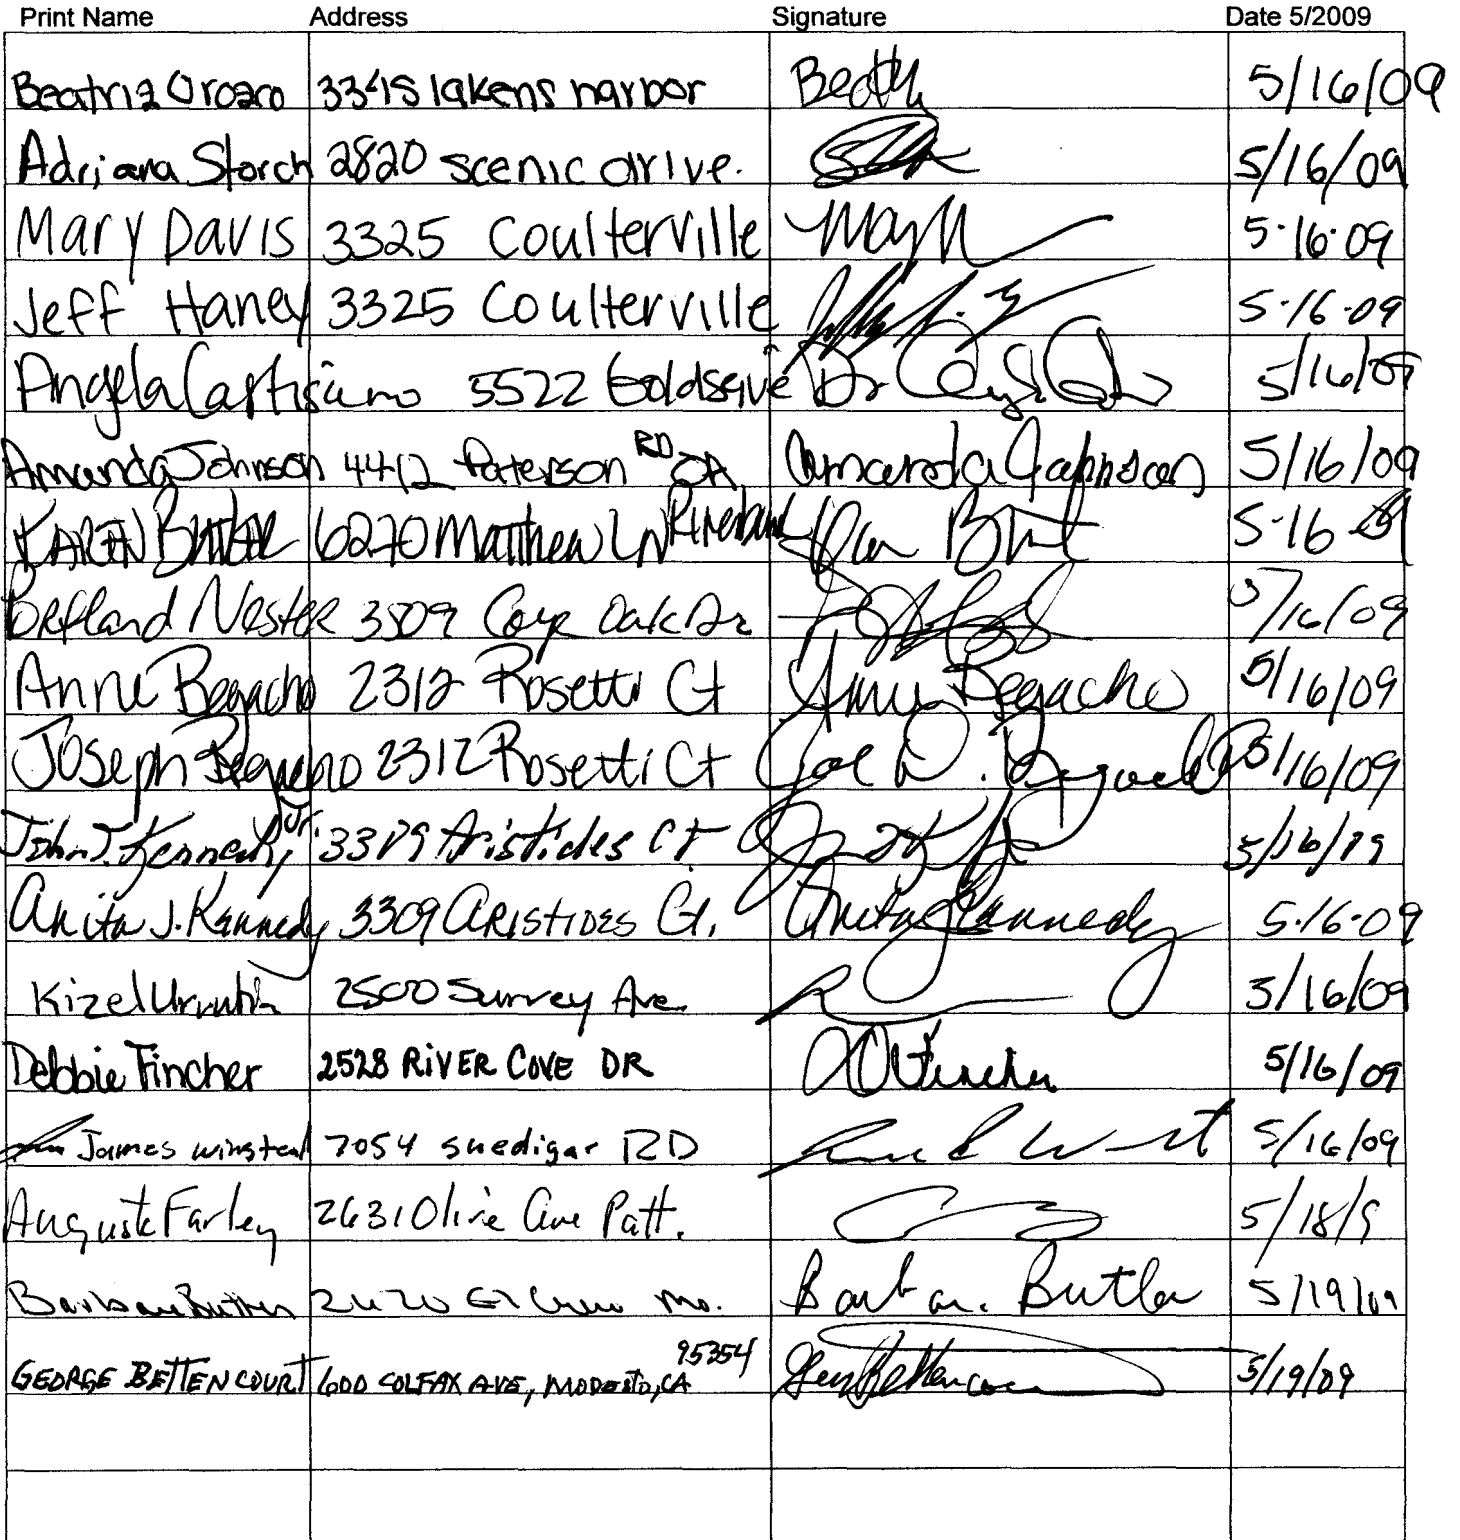 Print Name Address Signature Date 5/2009
Beatriz Orozco 3345 lakens harbor 5/16/09
Adriana Storch 2820 scenic drive. 5/16/09
Mary Davis 3325 Coulterville 5·16·09
Jeff Haney 3325 Coulterville 5·16·09
Angela 5522 Dr 5/16/09
Amanda Johnson 4412 Paterson RD Amanda Johnson 5/16/09
KAREN Butler 6270 Matthew LN Riverbank 5·16
Nester 3509 Oak Dr 5/16/09
Anne Begacho 2312 Rosetti Ct Anne Begacho 5/16/09
Joseph Begacho 2312 Rosetti Ct Joe D. 5/16/09
John J. Kennedy, Jr. Aristides Ct 5/16/
Anita J. Kennedy 3309 ARISTIDES Ct. Anita Kennedy 5·16·09
Kizel 2500 Survey Ave. 5/16/09
Debbie Fincher 2528 RIVER COVE DR Fincher 5/16/09
James winstead 7054 snedigar RD 5/16/09
Farley 2631 Olive Ave Patt. 5/18/9
Barbara Butler Mo. Butler 5/19/09
GEORGE BETTENCOURT 600 COLFAX AVE, MODESTO, CA 95354 5/19/09